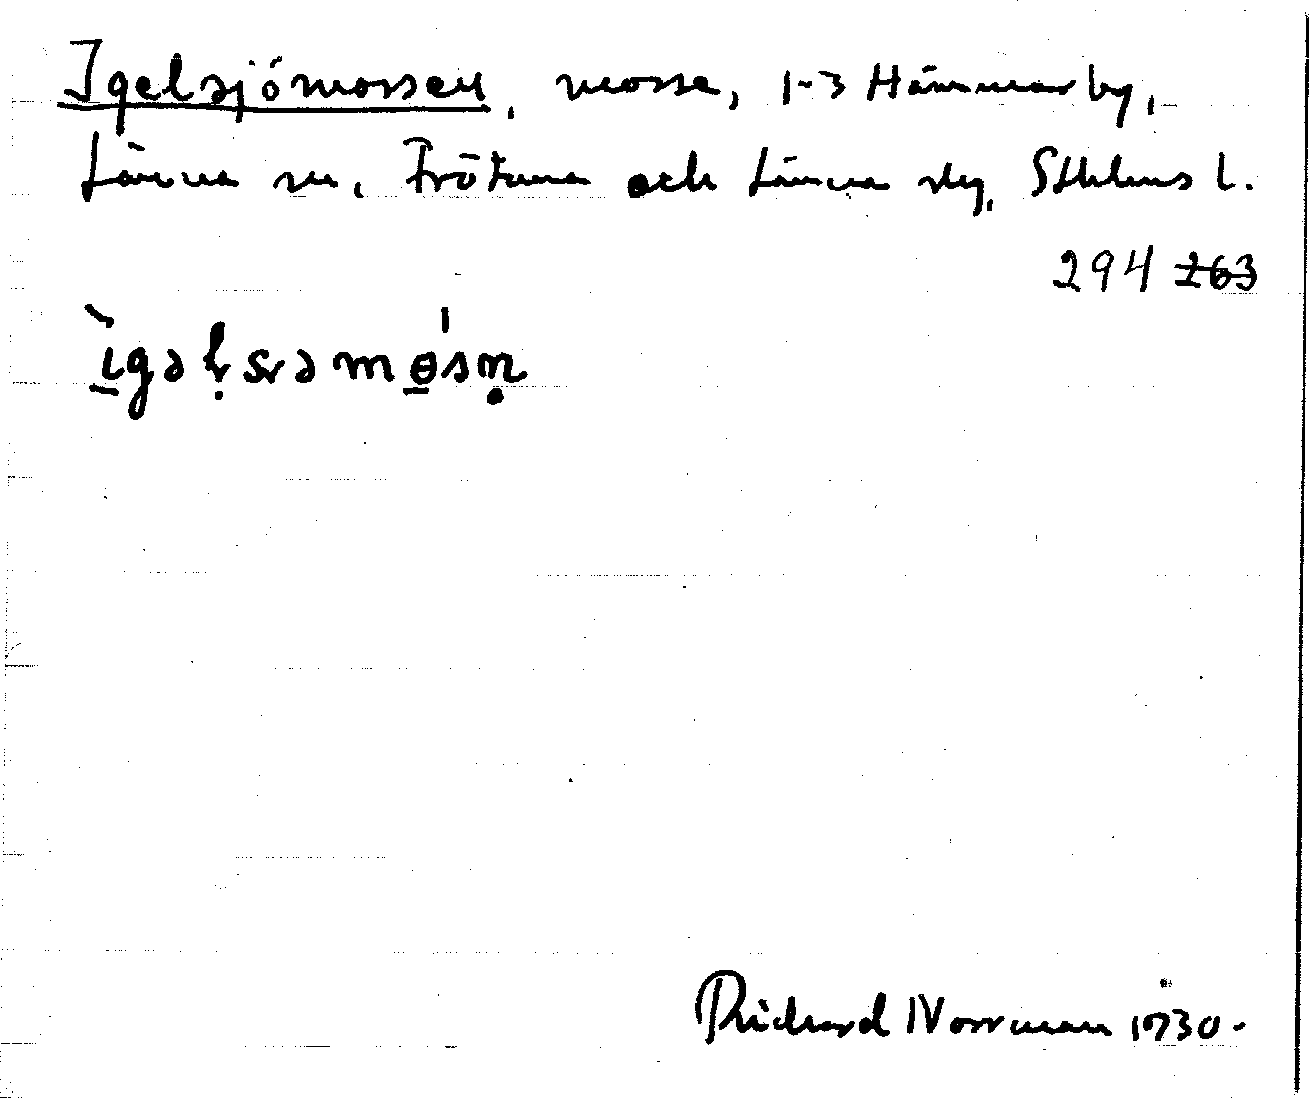 Igelsjömossen, mosse, 1-3 Hammarby,
Länna sn, Frötuna och Länna slg, Sthlms l.
294 263
ìgəl̥sɿəmɵ́sn̥
Richard Norrman 1930.